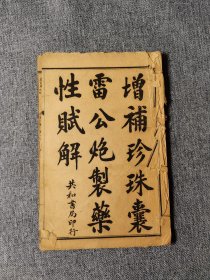 增補珍珠囊
雷公炮製藥
性賦解
共和書局印行